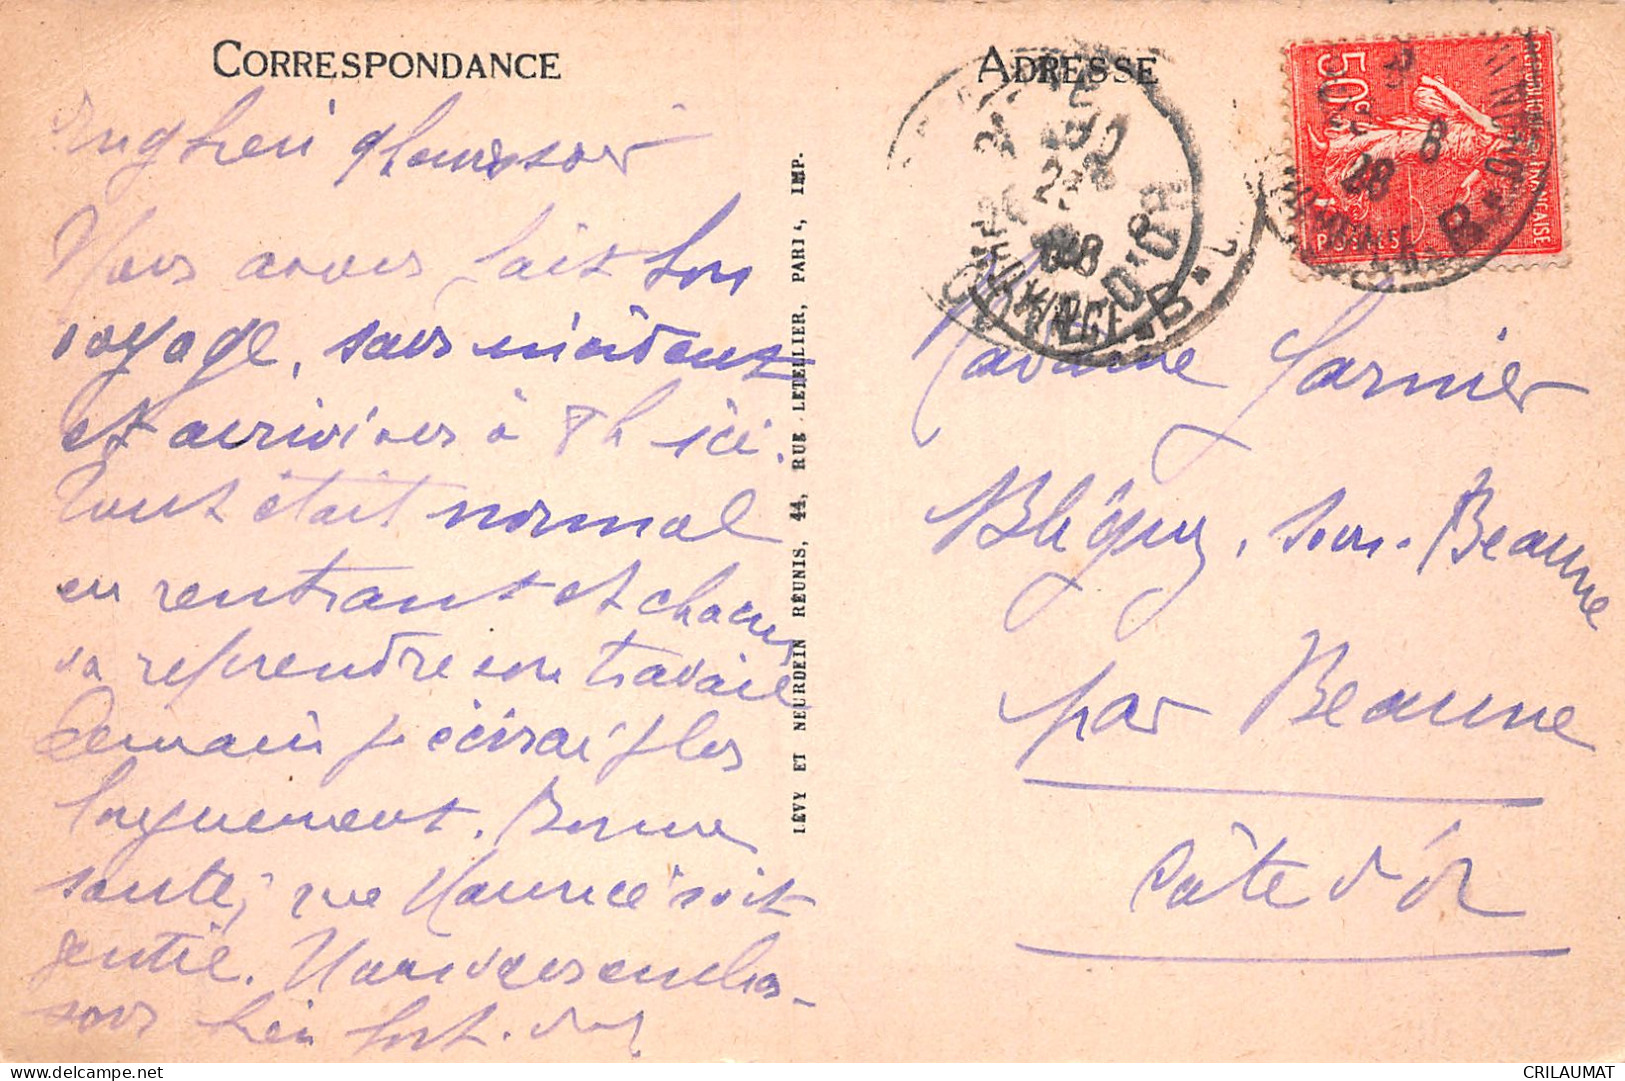 CORRESPONDANCE
Enghien 9 heures soir
Nous avons fait bon
voyage, sans incidents
et arrivions à 8 h ici.
Tout était normal
en rentrant et chacun
va reprendre son travail
Demain j'écrirai plus
longuement. Bonne
santé, que Maurice soit
gentil. Nous vous embras-
sons bien fort.
LÉVY ET NEURDEIN RÉUNIS, 44, RUE LETELLIER, PARIS, IMP.
ADRESSE
50c
POSTES
FRANÇAISE
28
D'OR
Madame Garnier
Bligny, sous-Beaune
par Beaune
Côte d'Or
CRILAUMAT